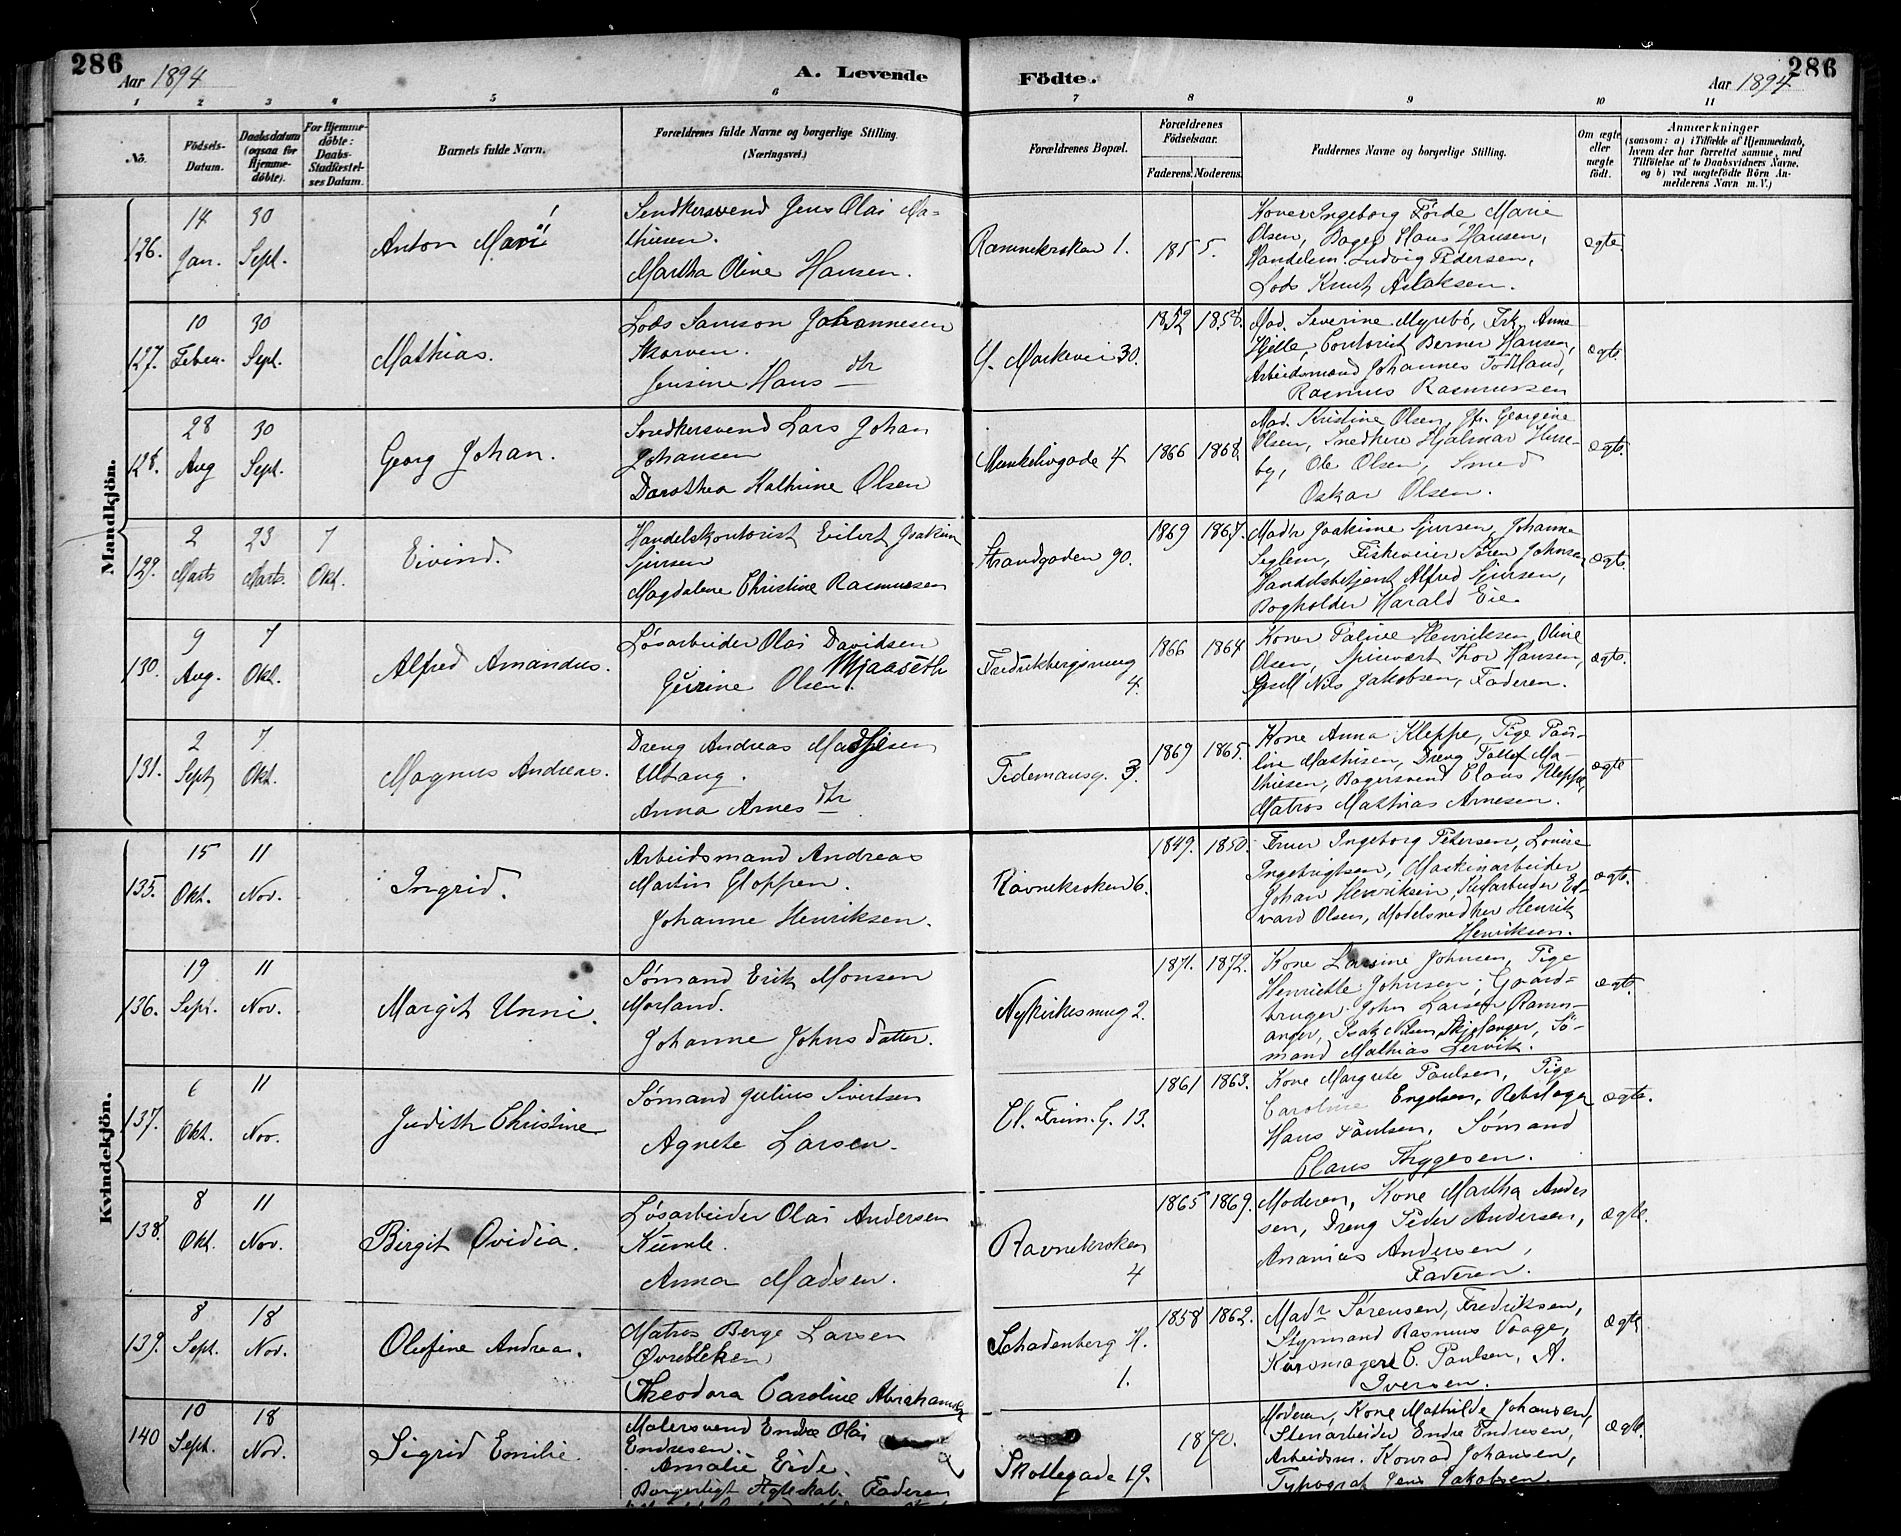 286
286
Aar 1894
A. Levende
Födte.
Aar 1894
1 2 3 4 5 6 7 8 9 10 11
No.
Födsels-
Datum.
Daabsdatum
(ogsaa for
Hjemme-
döbte).
For Hjemme-
döbte:
Daabs-
Stadfæstel-
ses Datum.
Barnets fulde Navn.
Forældrenes fulde Navne og borgerlige Stilling.
(Næringsvei.)
Forældrenes Bopæl.
Forældrenes
Födselsaar.
Faderens. Moderens.
Faddernes Navne og borgerlige Stilling.
Om ægte
eller
uægte
födt.
Anmærkninger
(saasom: a) i Tilfælde af Hjemmedaab,
hvem der har forrettet samme, med
Tilföielse af to Daabsvidners Navne,
og b) ved uægtefödte Börn An-
melderens Navn m. V.)
Mandkjön.
126.
14
Jan.
30
Sept.
Anton Mari
Snedkersvend Jens Olai Ma-
thiesen.
Martha Oline Hansen.
Ravnekroken 1.
1855.
Koner Ingeborg Förde, Marie
Olsen, Bager Hans Hansen,
Handelsm. Ludvig Pedersen,
Lods Knut Aslaksen.
ægte
127.
10
Febr.
30
Sept.
Mathias.
Lods Samson Johannesen
Skarven.
Jensine Hans dtr
Y. Markevei 30.
1852 1858.
Mad. Severine Myrebö, Frk. Anna
Hjelle, Contorist Berner Hansen,
Arbeidsmand Johannes Todland,
Rasmus Rasmussen
ægte.
128.
28
Aug
30
Sept.
Georg Johan.
Snedkersvend Lars Johan
Johansen
Dorothea Kathrine Olsen
Munkelivgade 4
1866 1868.
Mad. Kristine Olsen, Jfr. Georgine
Olsen, Snedkere Hjalmar Huse-
by, Ole Olsen, Smed
Oskar Olsen.
ægte.
129.
2
Marts
23
Marts.
7
Okt.
Eivind.
Handelskontorist Eilert Joakim
Sjursen
Magdalene Christine Rasmussen
Strandgaden 90.
1869 1867.
Madr Joakime Sjursen, Johanna
Seglem, Fiskeveier Søren Johnsen
Handelsbetjent Alfred Sjursen,
Bogholder Harald Eie.
ægte.
130.
9
Aug.
7
Okt.
Alfred Amandus.
Løsarbeider Olai Davidsen
Mjaaseth
Gurine Olsen.
Fredrikbergsmug
4.
1866 1864
Koner Paline Henriksen, Oline
Olsen, Thor Hansen,
Gsell Nils Jakobsen, Faderen.
ægte.
131.
2
Sept
7
Okt.
Magnus Andreas.
Dreng Andreas Mathiesen
Utfang.
Anna Arnes dtr.
Tidemansg. 3.
1869 1865.
Kone Anna Kleppe, Pige Pau-
line Mathisen, Dreng Tollef Ma-
thiesen, Bagersvend Claus Kleppe,
Matros Mathias Arnesen.
ægte
Kvindekjön.
135.
15
Okt.
11
Nov.
Ingrid.
Arbeidsmand Andreas
Martin Gloppen.
Johanne Henriksen.
Ravnekroken 6.
1849. 1850.
Fruer Ingeborg Petersen, Lovise
Ingebrigtsen, Maskinarbeider
Johan Henriksen, Ed-
vard Olsen, Modelsnedker Henrik
Henriksen.
ægte.
136.
19
Sept.
11
Nov.
Margit Unni.
Sømand Erik Monsen
Morland.
Johanne Johnsdatter.
Nykirkesmug 2.
1871. 1872.
Kone Larsine Johnsen, Pige
Henriette Johnsen, Gaard-
bruger John Larsen Raman-
anger, Isak Nilsen Skjelanger, Sö-
mand Mathias Lervik.
ægte.
137.
6
Okt.
11
Nov.
Judith Christine
Sømand Julius Sivertsen
Agnete Larsen.
Cl. Frim. G. 13.
1861 1863.
Kone Margrete Paulsen, Pige
Caroline Engelsen, Rebslager
Hans Paulsen, Sømand
Claus Thygesen.
ægte.
138.
8
Okt.
11
Nov.
Birgit Ovidia.
Løsarbeider Olai Andersen
Kumle.
Anna Madsen.
Ravnekroken
4
1865 1869.
Moderen, Kone Martha Ander
sen, Dreng Peder Andersen,
Ananias Andersen,
Faderen.
ægte.
139.
8
Sept.
18
Nov.
Olefine Andrea.
Matros Berge Larsen
Øvrebleken
Theodora Caroline Abrahamsen
Schadenberg H.
1.
1858 1862.
Madr Sörensen, Fredriksen,
Styrmand Rasmus Vaage,
Kurvmagere C. Paulsen, A.
Iversen.
ægte
140
10
Sept.
18
Nov.
Sigrid Emilie
Malersvend Endre Olai
Endresen.
Amalie Eide.
Borgerligt Ægteskab. Faderen
Skottegade 19.
1870.
Moderen, Kone Mathilde Johansen,
Stenarbeider Endre Endresen,
Arbeidsm. Konrad Johansen,
Typograf Jens Jakobsen
ægte.